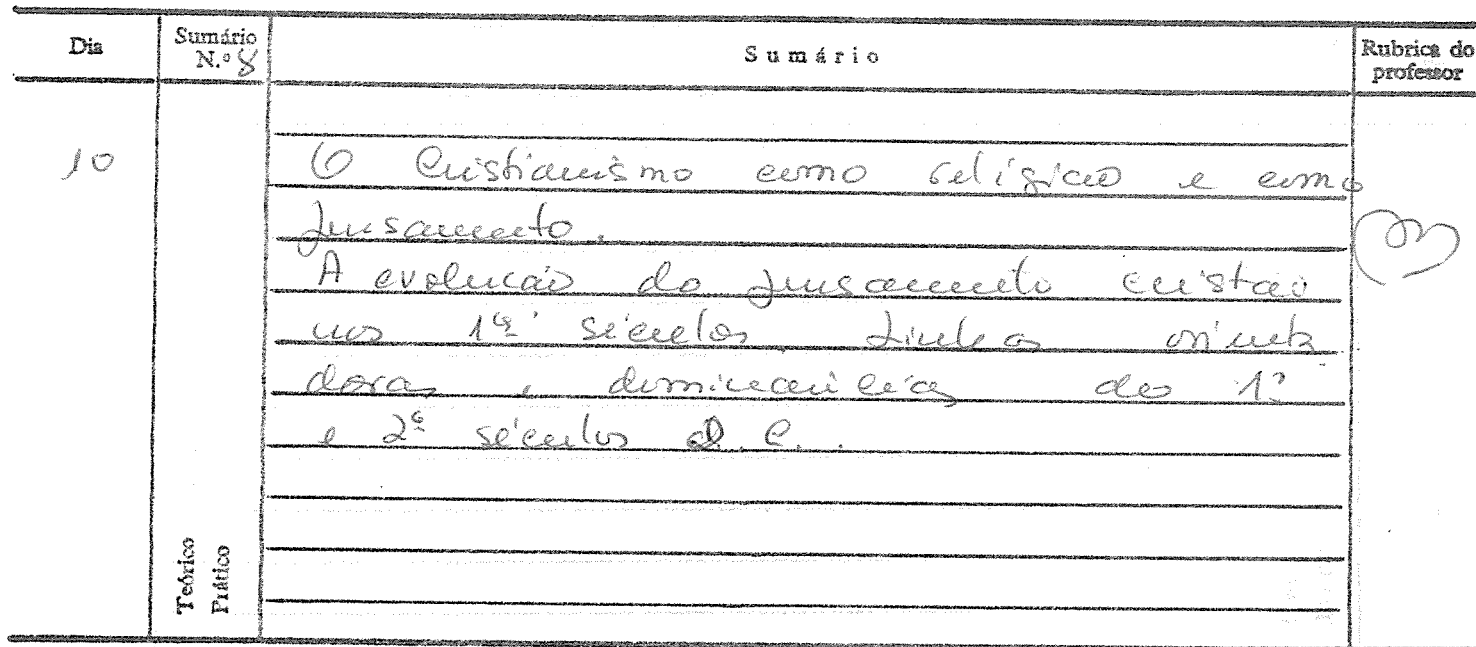 Dia
Sumário N.º 8
Sumário
Rubrica do professor
10
O Cristianismo como religião e como
pensamento.
A evolução do pensamento cristão
nos 1ºs séculos. Linhas orienta
doras e dominância do 1º
e 2º séculos d. C..
Teórico
Prático